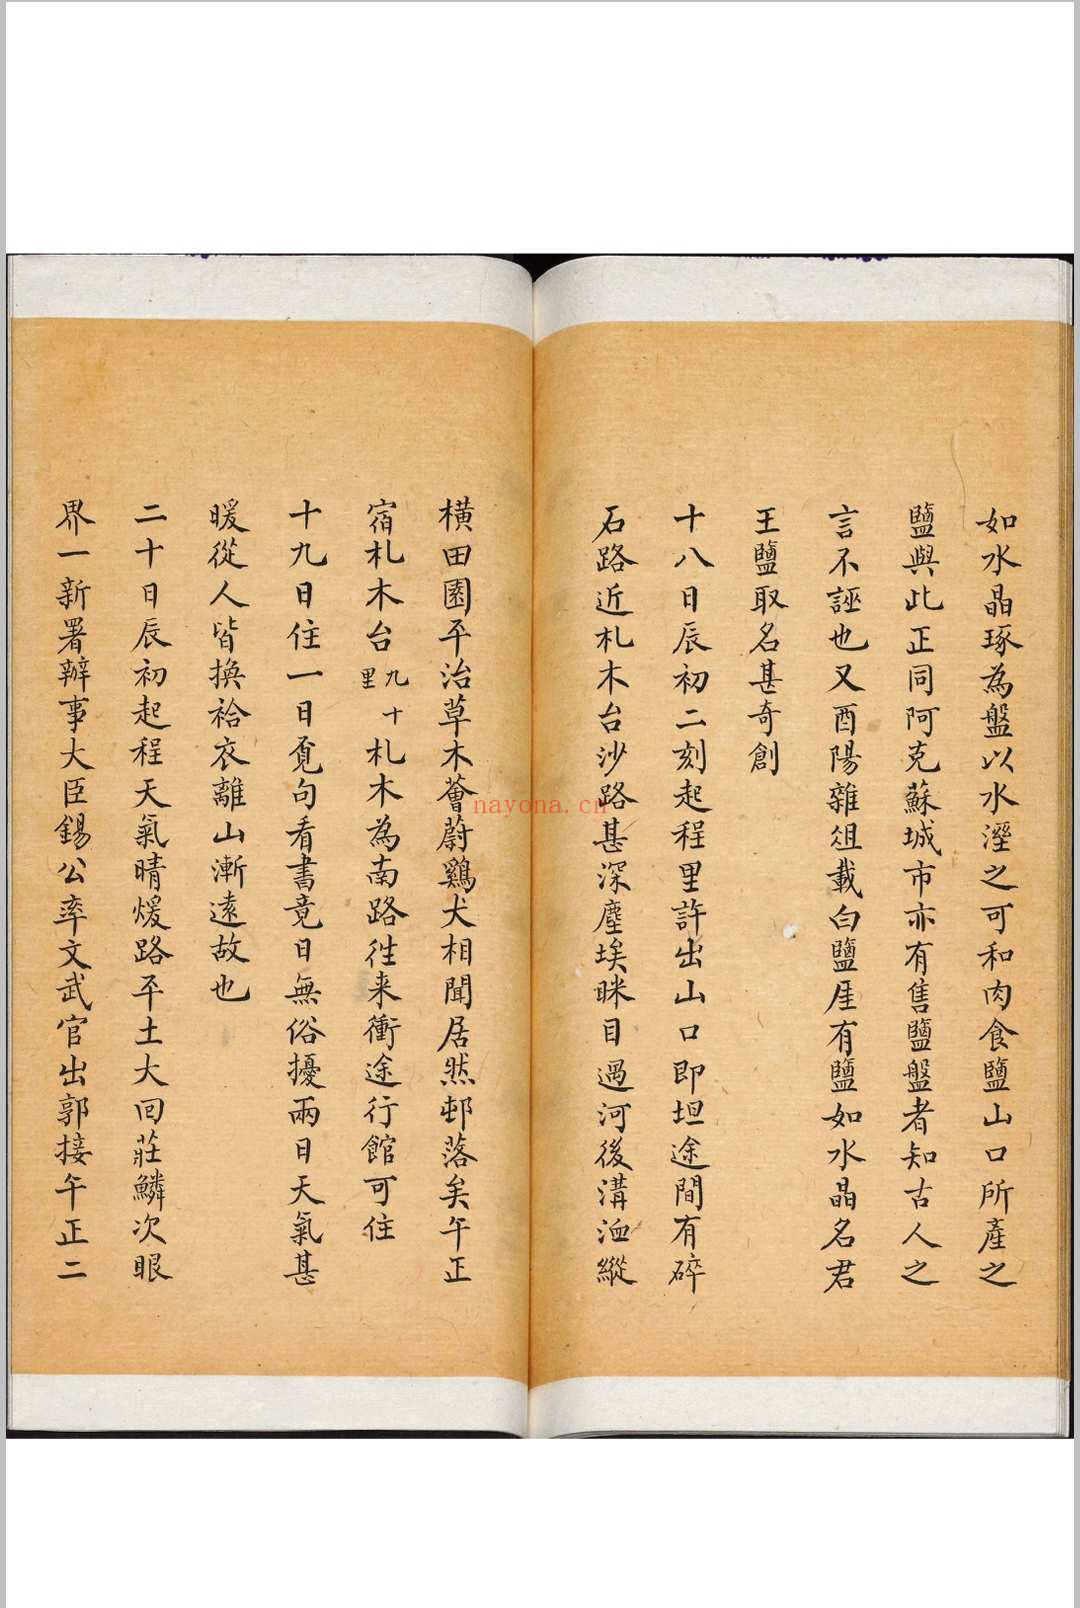 如水晶琢為盤以水溼之可和肉食鹽山口所產之
鹽與此正同阿克蘇城市亦有售鹽盤者知古人之
言不誣也又酉陽雜俎載白鹽厓有鹽如水晶名君
王鹽取名甚奇創
十八日辰初二刻起程里許出山口即坦途間有碎
石路近札木台沙路甚深塵埃眯目過河後溝洫縱
橫田園平治草木薈蔚鷄犬相聞居然邨落矣午正
宿札木台九十里札木為南路往来衝途行館可住
十九日住一日覔句看書竟日無俗擾兩日天氣甚
暖從人皆換袷衣離山漸遠故也
二十日辰初起程天氣晴煖路平土大回莊鱗次眼
界一新署辦事大臣錫公率文武官出郭接午正二
nayona.cn